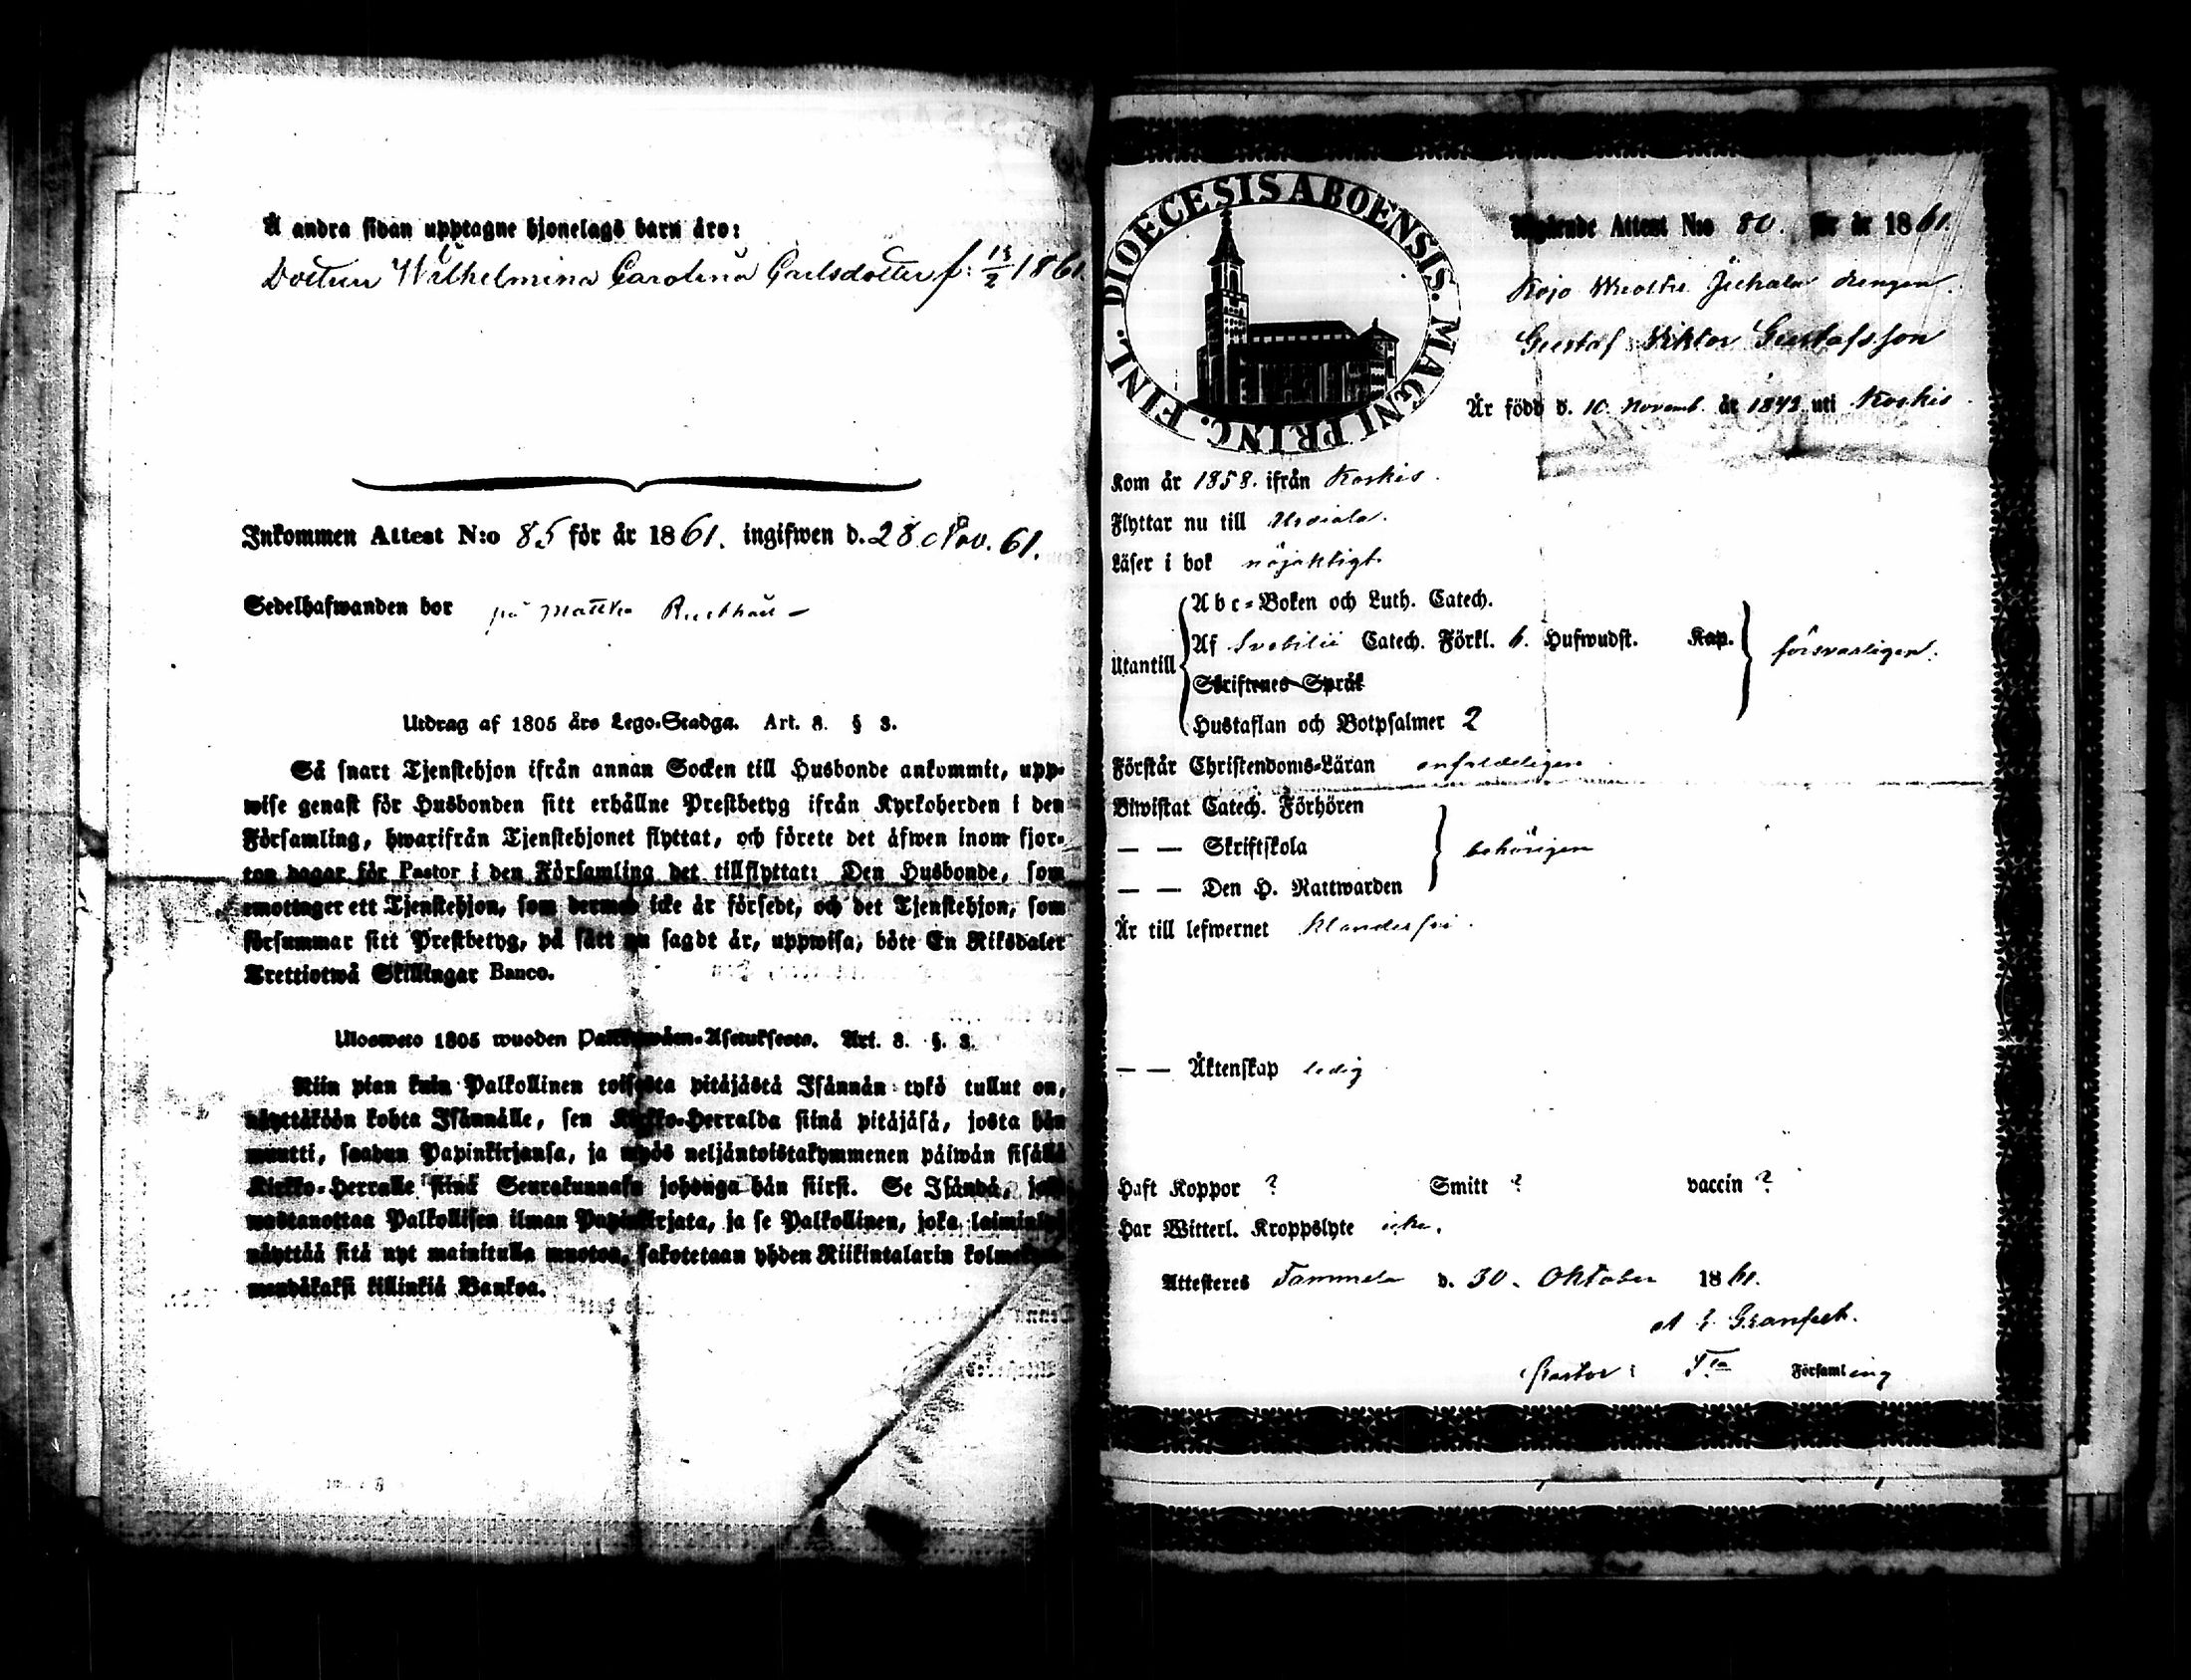 Å andra sidan upptagne hjonelags barn äro:
Dottren Wilhelmina Carolina Carlsdotter f: 15/2 1861
Inkommen Attest N:o 85 för år 1861. ingifwen d. 28 Nov. 61.
Sedelhafwanden bor på
Utdrag af 1805 års Lego-Stadga. Art. 8. § 3.
Så snart Tjenstehjon ifrån annan Socken till Husbonde ankommit, upp-
wise genast för Husbonden sitt erhållne Prestbetyg ifrån Kyrkoherden i den
Församling, hwarifrån Tjenstehjonet flyttat, och förete det äfwen inom fjor-
ton dagar för Pastor i den Församling det tillflyttat: Den Husbonde, som
emottager ett Tjenstehjon, som dermed icke är försedt, och det Tjenstehjon, som
försummar sitt Prestbetyg, på sätt nu sagdt är, uppwisa, böte En Riksdaler
Trettiotwå Skillingar Banco.
Ulosweto 1805 wuoden Palkkawäen-Asetuksesta. Art. 8. §. 3.
Niin pian kuin Palkollinen toisesta pitäjästä Isännän tykö tullut on,
näyttäköön kohta Isännälle, sen Kirkko-Herralda siinä pitäjäsä, josta hän
muutti, saadun Papinkirjansa, ja myös neljäntoistakymmenen päiwän sisällä
Kirkko-Herralle siinä Seurakunnasa johonga hän siirsi. Se Isändä, joka
wastanottaa Palkollisen ilman Papinkirjata, ja se Palkollinen, joka laiminlyö
näyttää sitä nyt mainitulla muotoa, sakotetaan yhden Riikintalarin kolmekym-
mendäkaksi killinkiä Bankoa.
DIOECESIS ABOENSIS. MAGNI PRINC. FINL.
Utgående Attest N:o 80. för år 1861.
Kojo drengen
Gustaf Viktor Gustafsson
Är född d. 10. Novemb. år 1843 uti Koskis
Kom år 1858. ifrån Koskis.
Flyttar nu till Urdiala.
Läser i bok nöjaktigt.
Utantill
Abc-Boken och Luth. Catech.
Af Svebilii Catech. Förkl. 6. Hufwudst. Kap.
försvarligen.
Skriftenes Språk
Hustaflan och Botpsalmer 2
Förstår Christendoms-Läran enfaldeligen
Biwistat Catech. Förhören
— — Skriftskola
behörigen
— — Den H. Nattwarden
Är till lefwernet klanderfri.
— — Äktenskap ledig
Haft Koppor ? Smitt ? vaccin ?
Har Witterl. Kroppslyte icke.
Attesteres Tammela d. 30. Oktober 1861.
A E Granfelt.
Pastor i T:la Församling